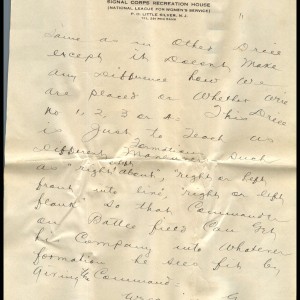 SIGNAL CORPS RECREATION HOUSE
(NATIONAL LEAGUE FOR WOMEN'S SERVICE)
P. O. LITTLE SILVER, N.J.
Same as in Other Drill
except it Doesn't Make
any Difference how we
are placed or Whether We
No 1, 2, 3 or 4. This Drill
is Just to Teach us
Different Formations Such
as "right about", "right or left
front into line", "right or left
flank" So that Commander
on Battle field Can Put
his Company into Whatever
formation he sees fit by
Giving the Command.